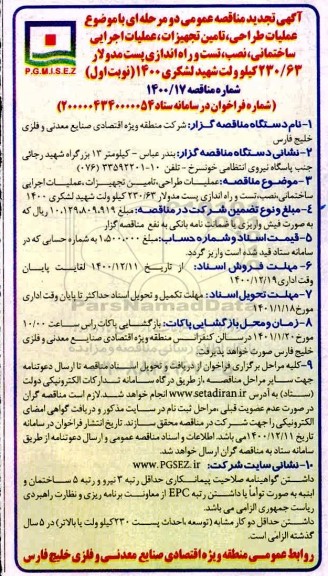 آگهی تجدید مناقصه عمومی دو مرحله ای با موضوع
عملیات طراحی، تامین تجهیزات، عملیات اجرایی
ساختمانی، نصب، تست و راه اندازی پست مدولار
۲۳۰/۶۳ کیلو ولت شهید لشکری ۱۴۰۰ (نوبت اول)
P.G.M.I.S.E.Z
شماره مناقصه ۱۴۰۰/۱۷
(شماره فراخوان در سامانه ستاد ۲۰۰۰۰۰۴۳۴۰۰۰۰۰۵۴)
۱- نام دستگاه مناقصه گزار: شرکت منطقه ویژه اقتصادی صنایع معدنی و فلزی
خلیج فارس
۲- نشانی دستگاه مناقصه گزار: بندر عباس - کیلومتر ۱۳ بزرگراه شهید رجائی
جنب پاسگاه نیروی انتظامی خونسرخ - تلفن ۱۰-۳۳۵۹۲۲۰۱ (۰۷۶)
۳- موضوع مناقصه: عملیات طراحی، تامین تجهیزات، عملیات اجرایی
ساختمانی، نصب، تست و راه اندازی پست مدولار ۲۳۰/۶۳ کیلو ولت شهید لشکری ۱۴۰۰
۴- مبلغ و نوع تضمین شرکت در مناقصه: مبلغ ۱۰،۱۲۹،۸۰۹،۹۱۹ ریال که
به صورت فیش واریزی یا ضمانت نامه بانکی به نفع مناقصه گزار
۵- قیمت اسناد و شماره حساب: مبلغ ۱،۵۰۰،۰۰۰ به شماره حسابی که در
سامانه ستاد قید شده است واریز گردد.
۶- مهلت فروش اسناد: از تاریخ ۱۴۰۰/۱۲/۱۱ لغایت پایان
وقت اداری ۱۴۰۰/۱۲/۱۹
۷- مهلت تحویل اسناد: مهلت تکمیل و تحویل اسناد حداکثر تا پایان وقت اداری
مورخ ۱۴۰۱/۱/۱۸
۸- زمان و محل بازگشایی پاکات: بازگشایی پاکات راس ساعت ۱۰/۰۰
مورخ ۱۴۰۱/۱/۲۰ در سالن کنفرانس منطقه ویژه اقتصادی صنایع معدنی و فلزی
خلیج فارس صورت خواهد پذیرفت.
۹- کلیه مراحل برگزاری فراخوان از دریافت و تحویل اسناد مناقصه تا ارسال دعوتنامه
جهت سایر مراحل مناقصه، از طریق درگاه سامانه تدارکات الکترونیکی دولت
(ستاد) به آدرس www.setadiran.ir انجام خواهد شد. لازم است مناقصه گران
در صورت عدم عضویت قبلی، مراحل ثبت نام در سایت مذکور و دریافت گواهی امضای
الکترونیکی را جهت شرکت در مناقصه محقق سازند. تاریخ انتشار فراخوان در سامانه
تاریخ ۱۴۰۰/۱۲/۱۱ می باشد. اطلاعات و اسناد مناقصه عمومی و ارسال دعوتنامه از طریق
سامانه ستاد به مناقصه گران ارسال خواهد شد.
۱۰- نشانی سایت شرکت: www.PGSEZ.ir
داشتن گواهینامه صلاحیت پیمانکاری حداقل رتبه ۳ نیرو و رتبه ۵ ساختمان و
ابنیه به صورت توأما یا داشتن رتبه EPC از معاونت برنامه ریزی و نظارت راهبردی
ریاست جمهوری الزامی می باشد.
داشتن حداقل دو کار مشابه (توسعه یا احداث پست ۲۳۰ کیلو ولت یا بالاتر) در ۵ سال
گذشته الزامی است.
روابط عمومی منطقه ویژه اقتصادی صنایع معدنی و فلزی خلیج فارس